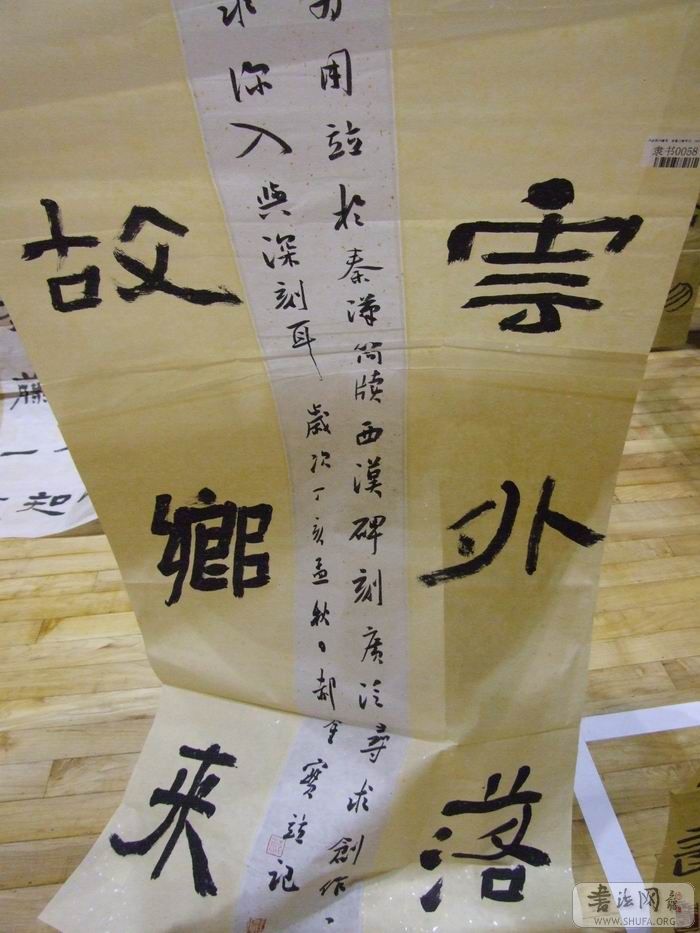 雲外落
用筮於秦漢简牍西漢碑刻廣泛尋求創作
求深入與深刻耳 歲次丁亥孟秋 郝金寶誼記
故鄉來
隶书0058
藤
一
知
書法网
WWW.SHUFA.ORG